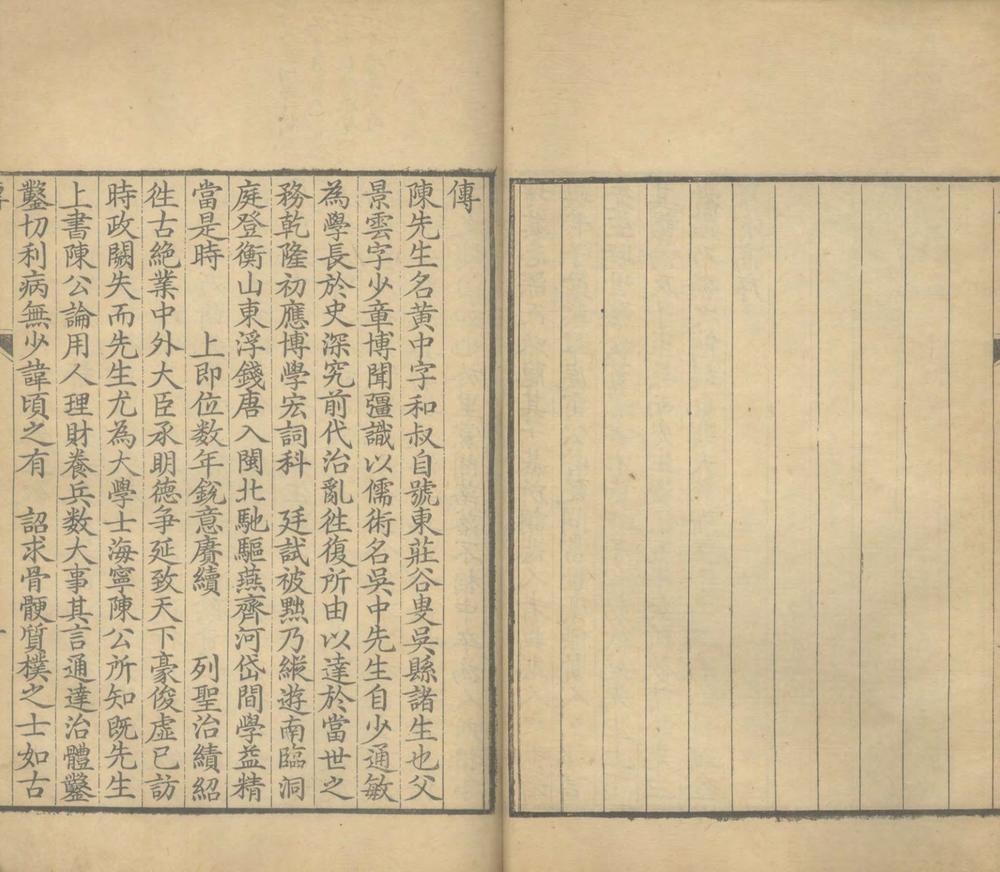 傳
陳先生名黄中字和叔自號東莊谷叟吳縣諸生也父
景雲字少章博聞彊識以儒術名吳中先生自少通敏
為學長於史深究前代治亂徃復所由以達於當世之
務乾隆初應博學宏詞科 廷試被黜乃縱遊南臨洞
庭登衡山東浮錢唐入閩北馳驅燕齊河岱間學益精
當是時 上即位数年銳意賡續 列聖治績紹
徃古絶業中外大臣承明德争延致天下豪俊虛已訪
時政闕失而先生尤為大學士海寧陳公所知既先生
上書陳公論用人理財養兵数大事其言通達治體鑿
鑿切利病無少諱頃之有 詔求骨骾質樸之士如古